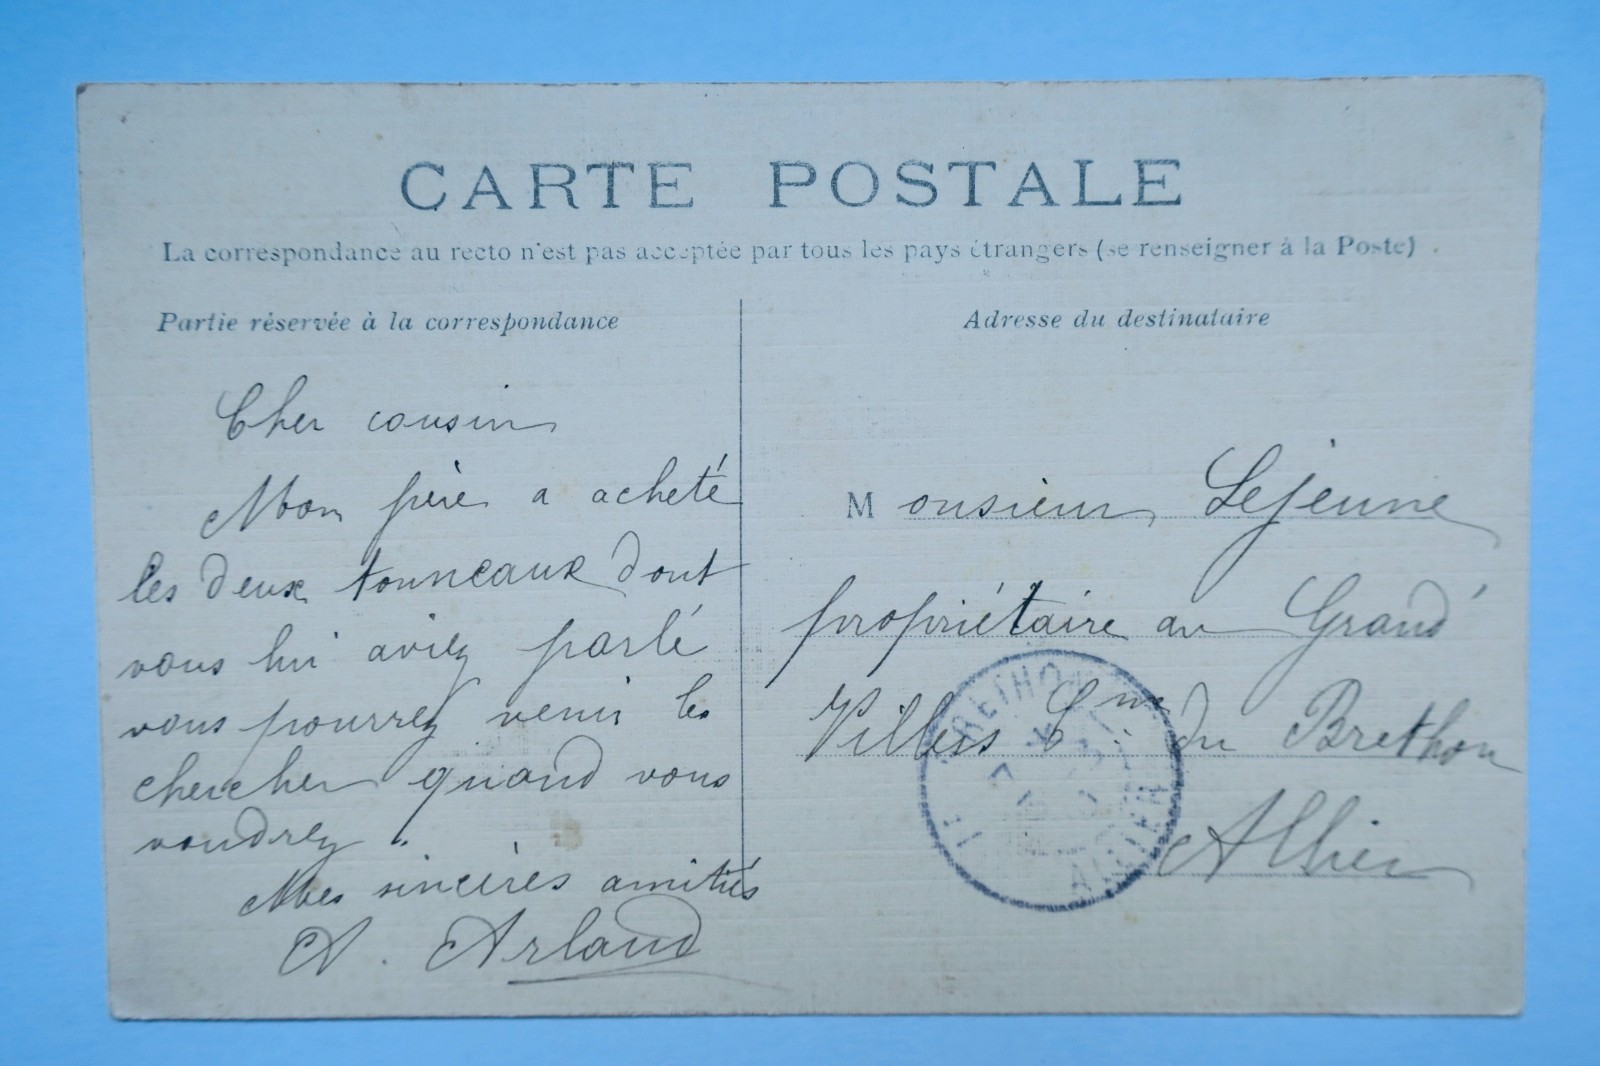 CARTE POSTALE
La correspondance au recto n'est pas acceptée par tous les pays étrangers (se renseigner à la Poste)
Partie réservée à la correspondance
Cher cousin
Mon père a acheté
les deux tonneaux dont
vous lui aviez parlé
vous pourrez venir les
chercher quand vous
voudrez.
Mes sincères amitiés
A. Arland
Adresse du destinataire
Monsieur Lejeune
propriétaire au Grand
Villess Cne du Brethon
Allier
LE BRETHON
ALLIER